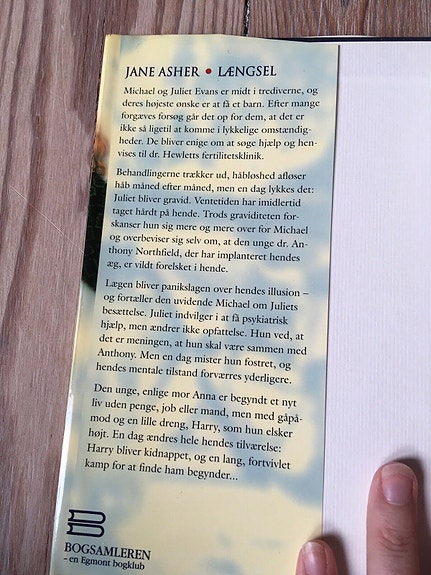 JANE ASHER • LÆNGSEL
Michael og Juliet Evans er midt i trediverne, og
deres højeste ønske er at få et barn. Efter mange
forgæves forsøg går det op for dem, at det er
ikke så ligetil at komme i lykkelige omstændig-
heder. De bliver enige om at søge hjælp og hen-
vises til dr. Hewletts fertilitetsklinik.
Behandlingerne trækker ud, håbløshed afløser
håb måned efter måned, men en dag lykkes det:
Juliet bliver gravid. Ventetiden har imidlertid
taget hårdt på hende. Trods graviditeten for-
skanser hun sig mere og mere over for Michael
og overbeviser sig selv om, at den unge dr. An-
thony Northfield, der har implanteret hendes
æg, er vildt forelsket i hende.
Lægen bliver panikslagen over hendes illusion –
og fortæller den uvidende Michael om Juliets
besættelse. Juliet indvilger i at få psykiatrisk
hjælp, men ændrer ikke opfattelse. Hun ved, at
det er meningen, at hun skal være sammen med
Anthony. Men en dag mister hun fostret, og
hendes mentale tilstand forværres yderligere.
Den unge, enlige mor Anna er begyndt et nyt
liv uden penge, job eller mand, men med gåpå-
mod og en lille dreng, Harry, som hun elsker
højt. En dag ændres hele hendes tilværelse:
Harry bliver kidnappet, og en lang, fortvivlet
kamp for at finde ham begynder...
BOGSAMLEREN
– en Egmont bogklub